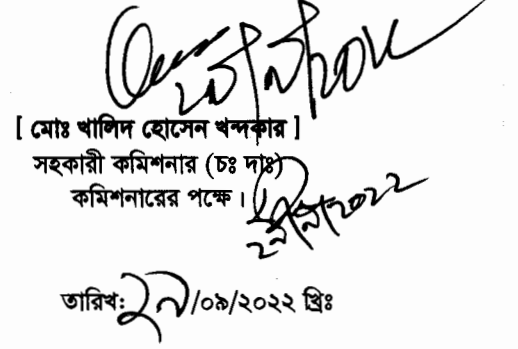 [ মোঃ খালিদ হোসেন খন্দকার ]
সহকারী কমিশনার (চঃ দাঃ)
কমিশনারের পক্ষে।
তারিখ: ২৯/০৯/২০২২ খ্রিঃ